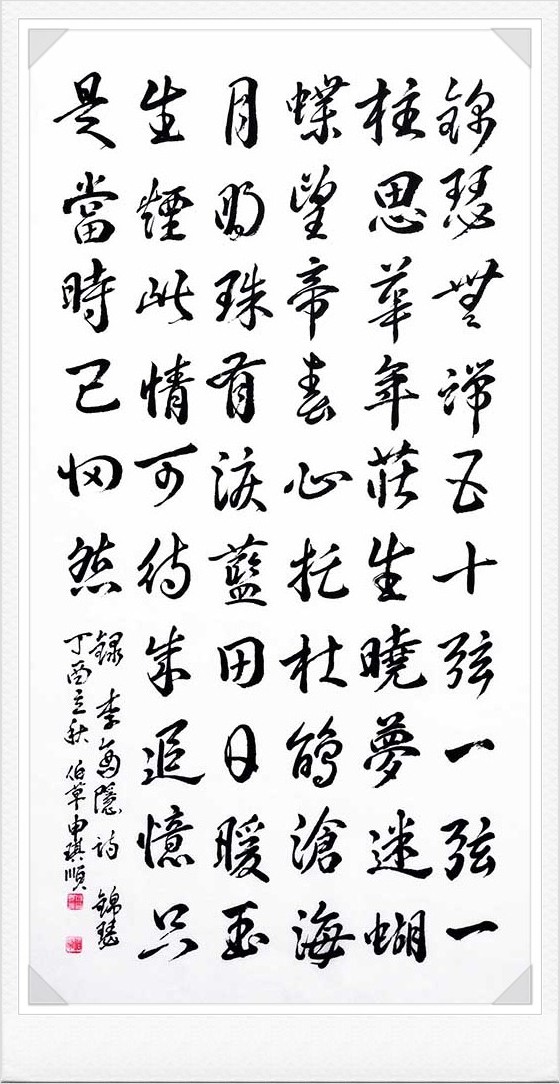 錦瑟無端五十弦一弦一
柱思華年莊生曉夢迷蝴
蝶望帝春心托杜鵑滄海
月明珠有淚藍田日暖玉
生煙此情可待成追憶只
是當時已惘然
錄李商隱詩錦瑟
丁酉立秋伯草申琪順